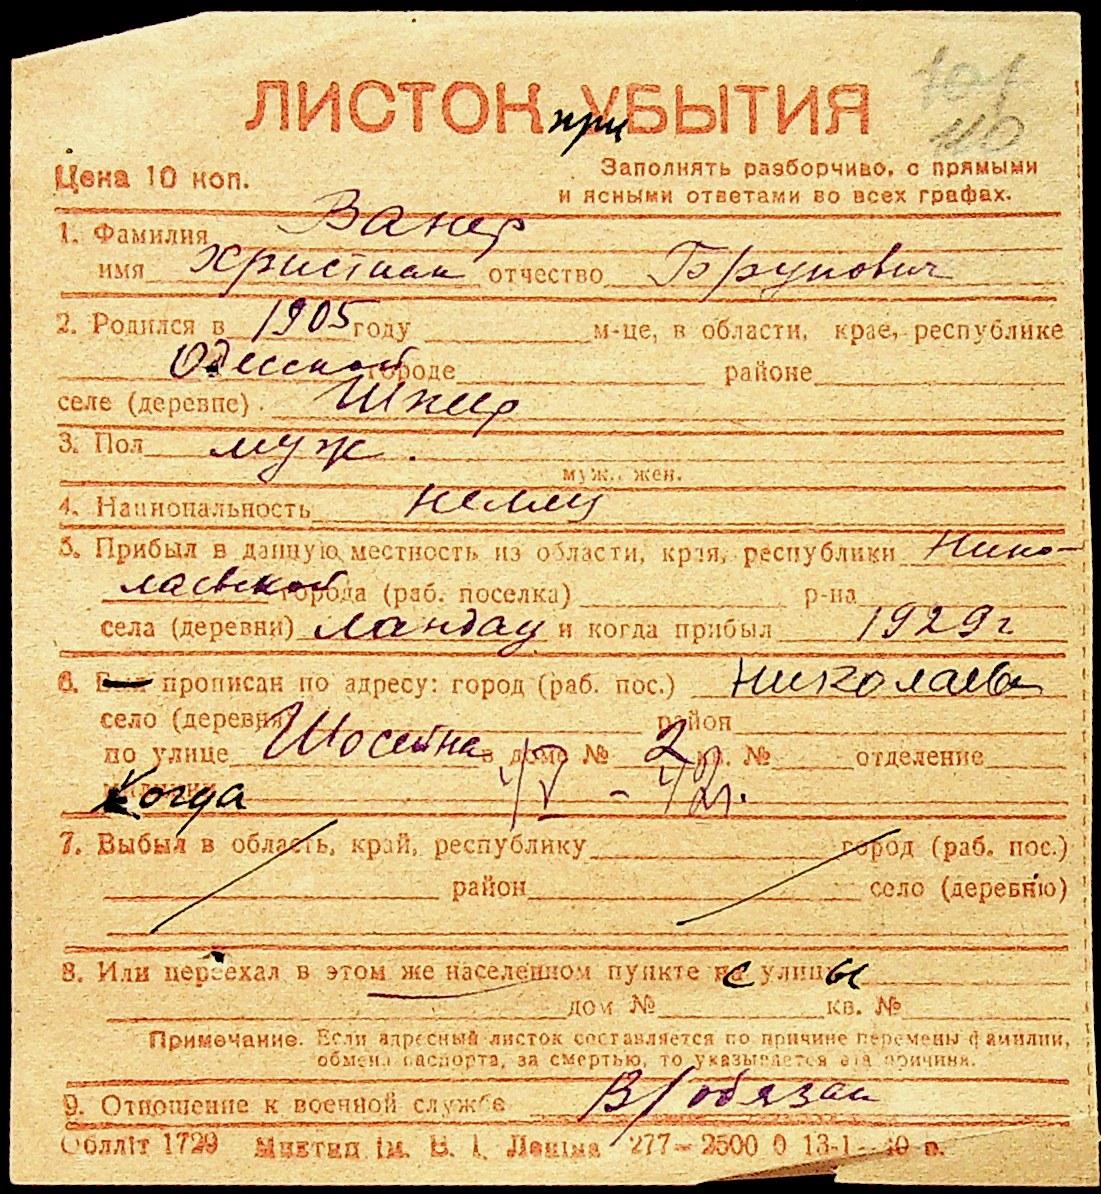 ЛИСТОК при УБЫТИЯ
107
110
Цена 10 коп.
Заполнять разборчиво, с прямыми
и ясными ответами во всех графах.
1. Фамилия Ванер
имя Христиан отчество Брунович
2. Родился в 1905 году м-це, в области, крае, республике
Одесской городе районе
селе (деревне) Шпеер
3. Пол муж.
муж., жен.
4. Национальность немец
5. Прибыл в данную местность из области, края, республики Нико-
лаевской города (раб. поселка) р-на
села (деревни) Ландау и когда прибыл 1929 г
6. прописан по адресу: город (раб. пос.) Николаев
село (деревня) район
по улице Шосейна в доме № 2 кв. № отделение
милиции Когда 4/V - 42 г.
7. Выбыл в область, край, республику город (раб. пос.)
район село (деревню)
8. Или переехал в этом же населенном пункте с улицы
дом № кв. №
Примечание. Если адресный листок составляется по причине перемены фамилии,
обмена паспорта, за смертью, то указывается эта причина.
9. Отношение к военной службе В/обязан
Обллiт 1729 Миктип iм. В. I. Ленiна 277–2500 0 13-1–40 р.